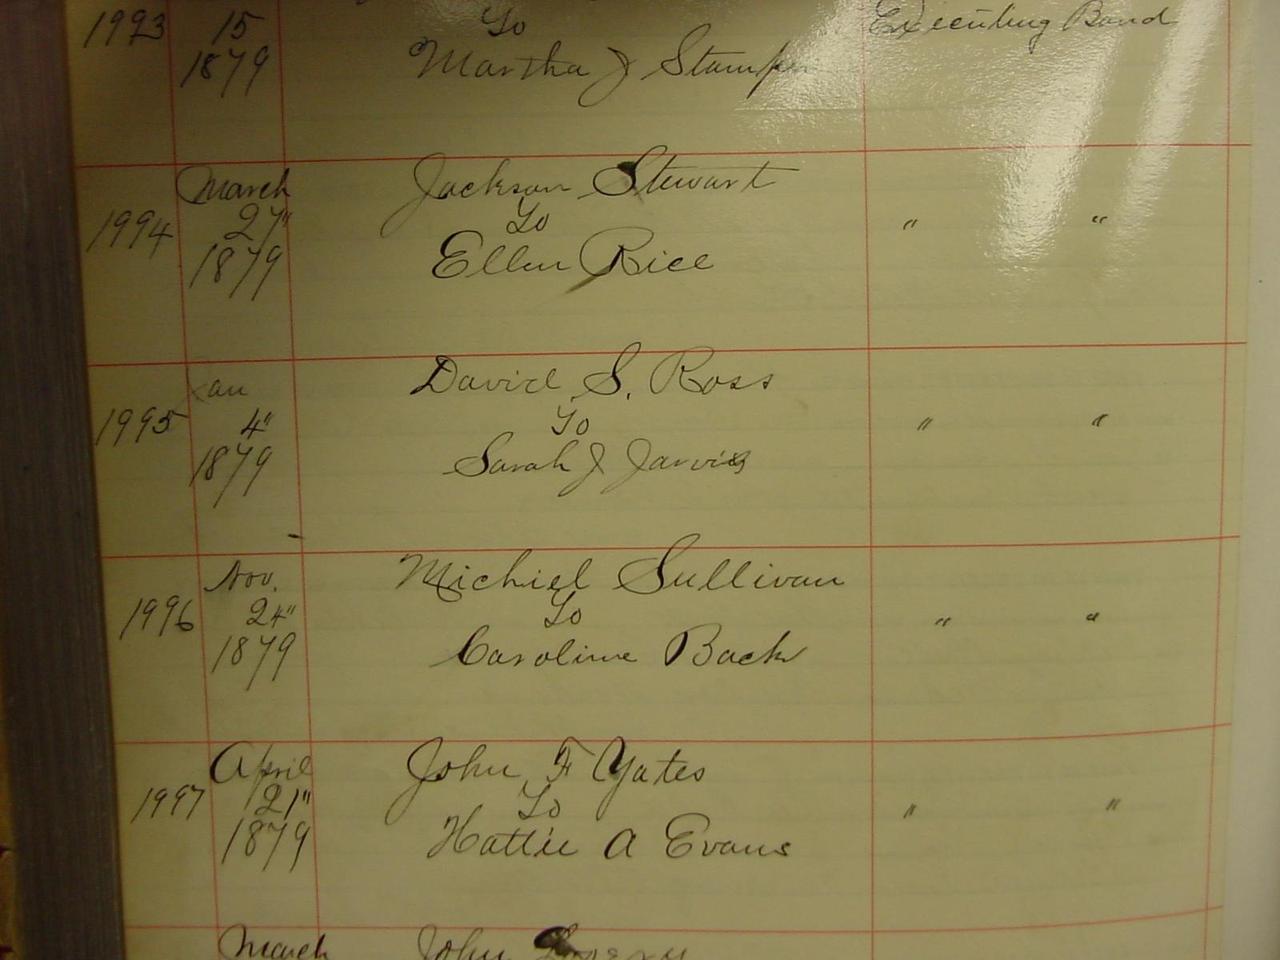 1993 15 To Executing Bond
1879 Martha J Stamper
March Jackson Stewart
1994 27" To " "
1879 Ellen Rice
Jan David S. Ross
1995 4" To " "
1879 Sarah J Jarvis
Nov. Michiel Sullivan
1996 24" To " "
1879 Caroline Back
April John F Yates
1997 21" To " "
1879 Hattie A Evans
March John